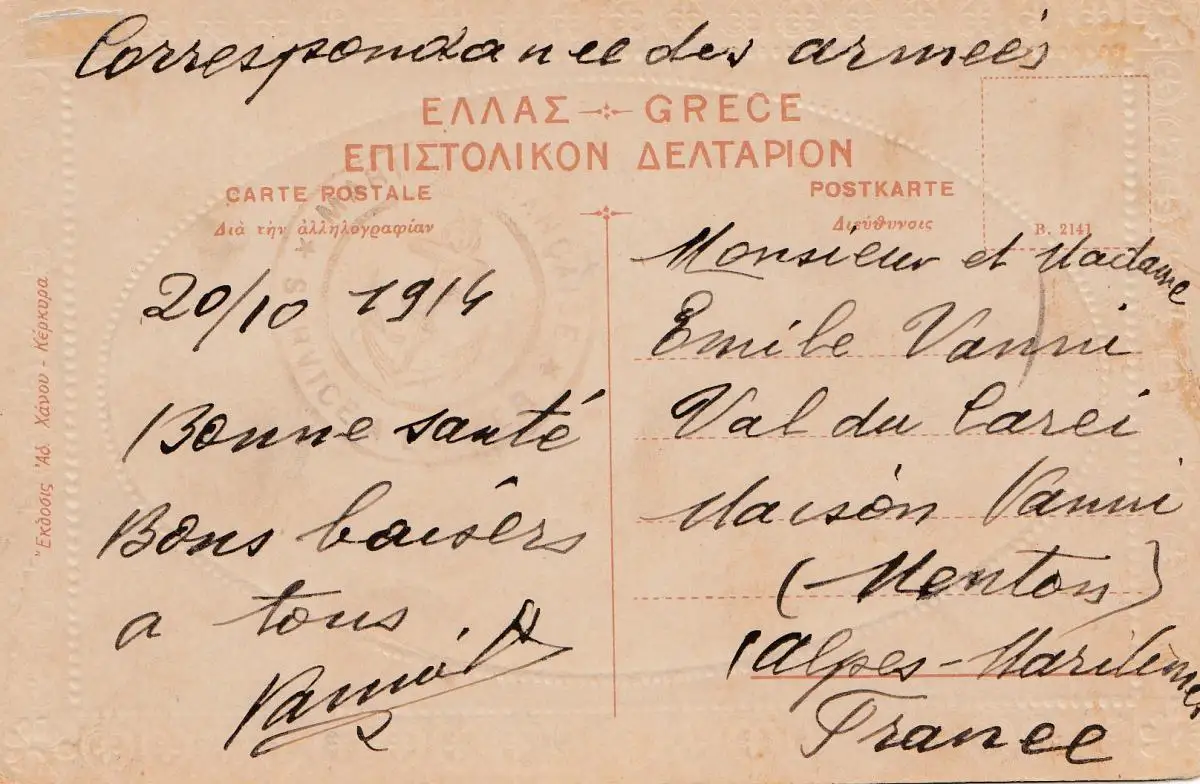 Correspondance des armées
ΕΛΛΑΣ GRECE
ΕΠΙΣΤΟΛΙΚΟΝ ΔΕΛΤΑΡΙΟΝ
CARTE POSTALE
Διὰ τὴν ἀλληλογραφίαν
POSTKARTE
Διεύθυνσις
B. 2141
20/10 1914
Bonne santé
Bons baisers
a tous.
Vanni
Monsieur et Madame
Emile Vanni
Val du Carei
Maison Vanni
(Menton)
(Alpes-Maritimes
France
Ἔκδοσις Ἀδ. Χάνου - Κέρκυρα